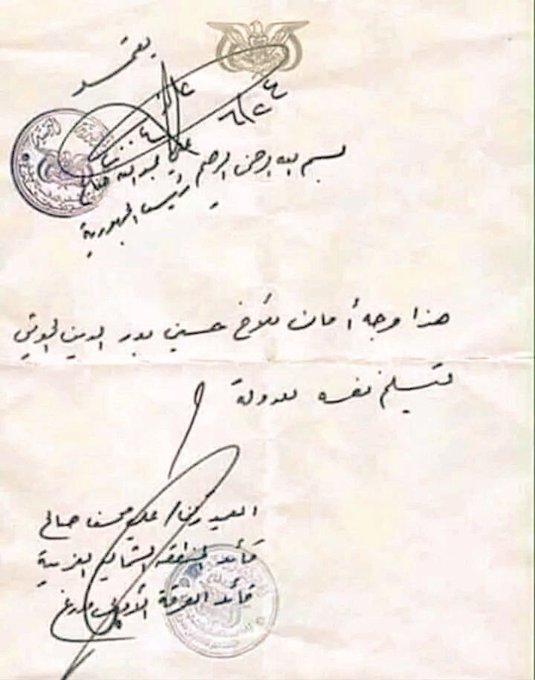 يعتمد
بسم الله الرحمن الرحيم
علي عبدالله صالح
رئيس الجمهورية
هذا وجه أمان للأخ حسين بدر الدين الحوثي
لتسليم نفسه للدولة
العميد ركن/ علي محسن صالح
قائد المنطقة الشمالية الغربية
قائد الفرقة الأولى مدرع